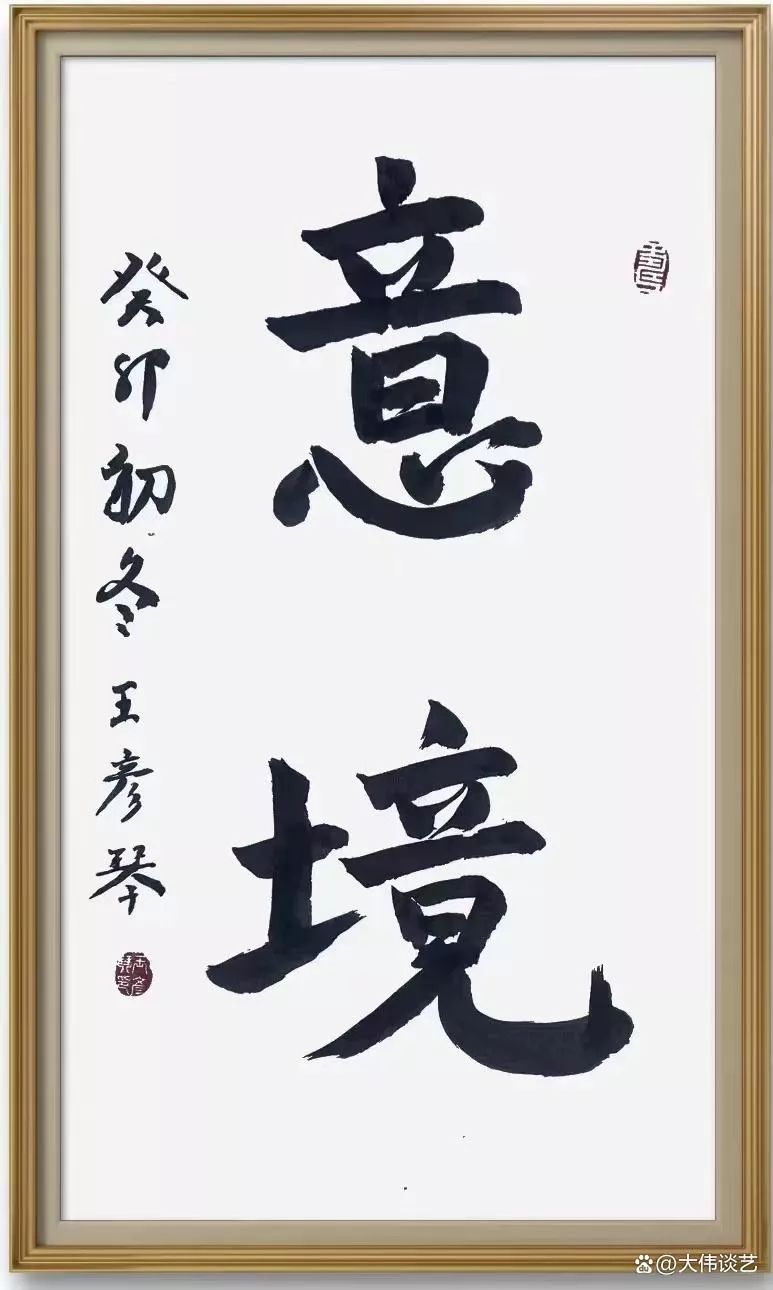 意境
癸卯初冬 王彦琴
@大伟谈艺